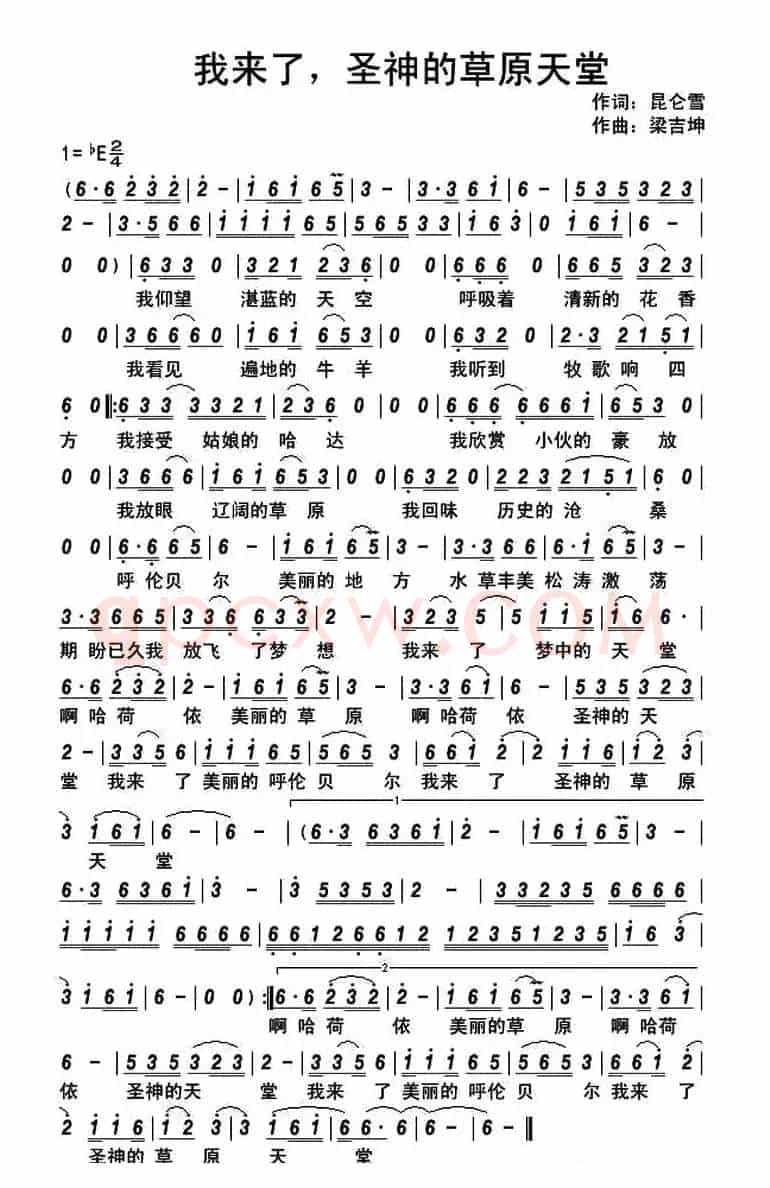 我来了，圣神的草原天堂
作词：昆仑雪
作曲：梁吉坤
1=♭E 2/4
(6·6 2 3 2|2 -|1 6 1 6 5|3 -|3·3 3 6 1|6 -|5 3 5 3 2 3|
2 -|3·5 6 6|1 1 1 1 6 5|5 6 5 3 3|1 6 3|0 1 6 1|6 -|
0 0)|6 3 3 0|3 2 1 2 3 6|0 0|6 6 6 0|6 3 5 3 2 3|
我仰望 湛蓝的 天 空 呼吸着 清新的 花 香
0 0|3 6 6 6 0|1 6 1 6 5 3|0 0|6 3 2 0|2·3 2 1 5 1|
我看见 遍地的 牛 羊 我听到 牧 歌 响 四
6 0‖:6 3 3 3 3 2 1|2 3 6 0|0 0|6 6 6 6 6 6 1|6 5 3 0|
方 我接受 姑娘的 哈 达 我欣赏 小伙的 豪 放
0 0|3 6 6 6|1 6 1 6 5 3|0 0|6 3 2 0|2 3 2 2 1 5 1|6 0|
我放眼 辽阔的 草 原 我回味 历史的 沧 桑
0 0|6·6 6 6 5|6 -|1 6 1 6 5|3 -|3 2 3 6|6·1 6 5|3 -|
呼 伦贝 尔 美丽的 地 方 水 草丰美 松 涛 激 荡
3·3 6 6 5|3 3 6 6 3 3|2 -|3 2 3 5|5 1 1 5|1 6|6·|
期 盼已久我 放飞 了梦 想 我来 了 梦中的 天 堂
6·6 2 3 2|2 -|1 6 1 6 5|3 -|3·3 3 6 1|6 -|5 3 5 3 2 3|
啊 哈荷 依 美丽的 草 原 啊 哈荷 依 圣神的 天
2 -|3 3 5 6|1 1 1 6 5|5 6 5 3|6 6 1 2|2|1 1 6|1 2 3|
堂 我来 了 美丽的 呼伦 贝 尔 我来 了 圣神的 草 原
1
3 1 6 1|6 -|6 -|(6·3 6 3 6 1|2 -|1 6 1 6 5|3 -|
天 堂
6·3 6 3 6 1|3 -|3 5 3 5 3|2 -|3 3 2 3 5 6 6 6 6|
1 1 1 1 1 6 6 6 6|6 6 1 2 6 6 1 2 1 2 3 5 1 2 3 5|1 6 3|
2
3 1 6 1|6 -|0 0):‖6·6 2 3 2|2 -|1 6 1 6 5|3·3 3 6 1|
啊 哈荷 依 美丽的 草 原 啊 哈荷
6 -|5 3 5 3 2 3|2 -|3 3 5 6|1 1 1 6 5|5 6 5 3|6 6 1 2|
依 圣神的 天 堂 我来 了 美丽的 呼伦 贝 尔 我来 了
2 1 1 6|1 2 3|3 1 6 1|6 6|6 -|6 -‖
圣神的 草 原 天 堂
qpcxw.com